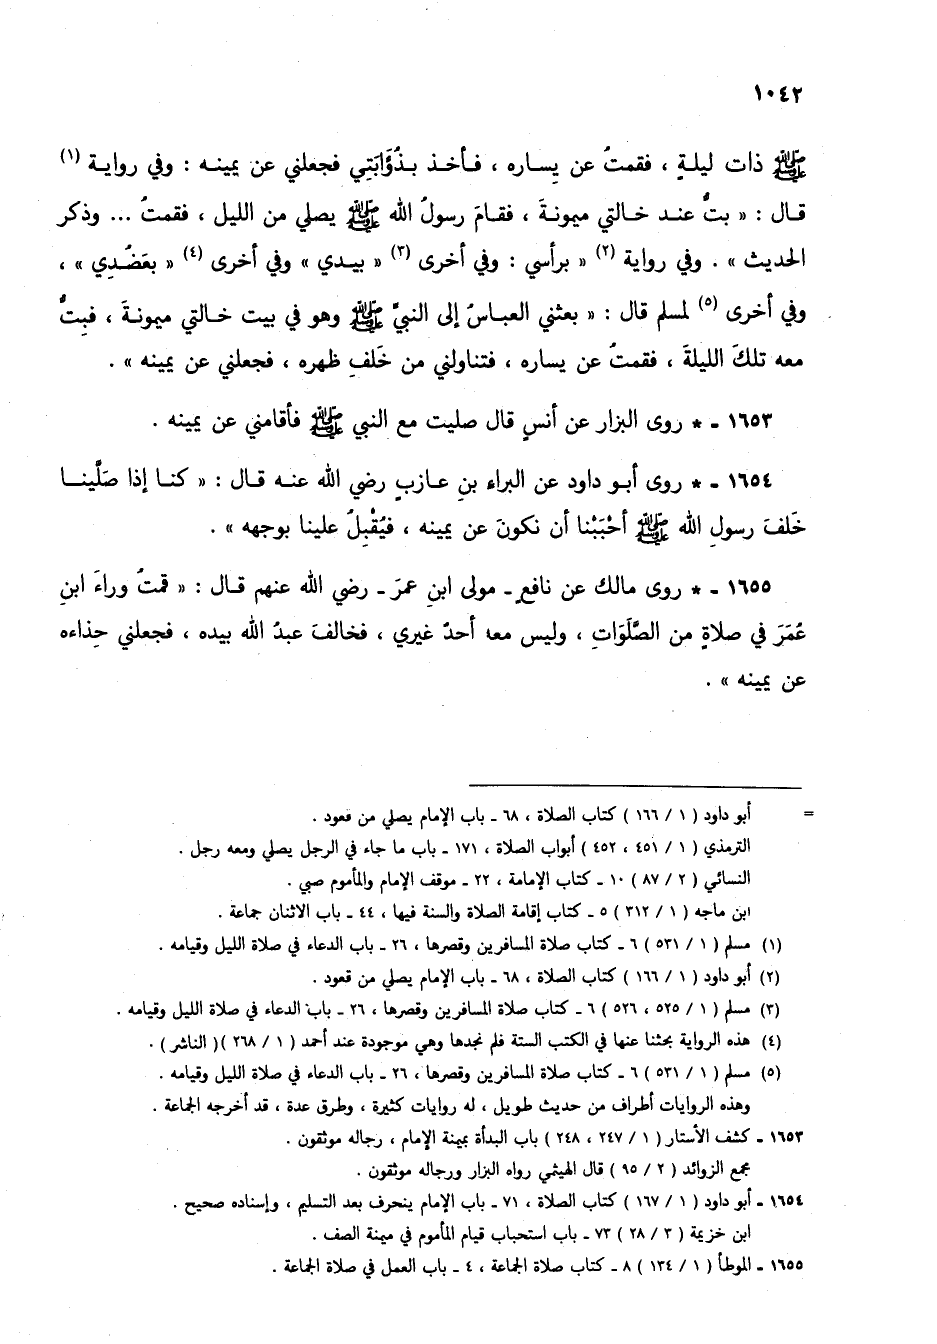 ١٠٤٢
ﷺ ذات ليلةٍ ، فقمتُ عن يِساره ، فـأخـذ بـذُؤَابَتِي فجعلني عن يمينـه : وفي روايـة (١)
قـال : « بتُّ عنـد خـالتي ميمونـةَ ، فقـامَ رسولُ الله ﷺ يصلي من الليل ، فقمتُ ... وذكر
الحديث » . وفي رواية (٢) « برأسي : وفي أخرى (٣) « بيـدي » وفي أخرى (٤) « بعَضُـدِي » ،
وفي أخرى (٥) لمسلم قال : « بعثني العباسُ إلى النبيِّ ﷺ وهو في بيت خـالتي ميمونـةَ ، فبِتُّ
معه تلكَ الليلةَ ، فقمتُ عن يساره ، فتناولني من خَلفِ ظهره ، فجعلني عن يمينه » .
١٦٥٣ ـ * روى البزار عن أنسٍ قال صليت مع النبي ﷺ فأقامني عن يمينه .
١٦٥٤ ـ * روى أبـو داود عن البراء بنِ عـازبٍ رضي الله عنـه قـال : « كنـا إذا صَلَّينـا
خَلفَ رسولِ الله ﷺ أحْبَبْنا أن نكونَ عن يمينه ، فيُقْبِلُ علينا بوجهه » .
١٦٥٥ ـ * روى مالك عن نافعٍ ـ مولى ابنِ عمرَ ـ رضي الله عنهم قال : « قمتُ وراءَ ابنِ
عُمَرَ في صلاةٍ من الصَّلَوَاتِ ، وليس معه أحدٌ غيري ، فخالفَ عبدُ الله بيده ، فجعلني حِذاءه
عن يمينه » .
= أبو داود ( ١ / ١٦٦ ) كتاب الصلاة ، ٦٨ ـ باب الإمام يصلي من قعود .
الترمذي ( ١ / ٤٥١ ، ٤٥٢ ) أبواب الصلاة ، ١٧١ ـ باب ما جاء في الرجل يصلي ومعه رجل .
النسائي ( ٢ / ٨٧ ) ١٠ ـ كتاب الإمامة ، ٢٢ ـ موقف الإمام والمأموم صبي .
ابن ماجه ( ١ / ٣١٢ ) ٥ ـ كتاب إقامة الصلاة والسنة فيها ، ٤٤ ـ باب الاثنان جماعة .
(١) مسلم ( ١ / ٥٣١ ) ٦ ـ كتاب صلاة المسافرين وقصرها ، ٢٦ ـ باب الدعاء في صلاة الليل وقيامه .
(٢) أبو داود ( ١ / ١٦٦ ) كتاب الصلاة ، ٦٨ ـ باب الإمام يصلي من قعود .
(٣) مسلم ( ١ / ٥٢٥ ، ٥٢٦ ) ٦ ـ كتاب صلاة المسافرين وقصرها ، ٢٦ ـ باب الدعاء في صلاة الليل وقيامه .
(٤) هذه الرواية بحثنا عنها في الكتب الستة فلم نجدها وهي موجودة عند أحمد ( ١ / ٢٦٨ )( الناشر ) .
(٥) مسلم ( ١ / ٥٣١ ) ٦ ـ كتاب صلاة المسافرين وقصرها ، ٢٦ ـ باب الدعاء في صلاة الليل وقيامه .
وهذه الروايات أطراف من حديث طويل ، له روايات كثيرة ، وطرق عدة ، قد أخرجه الجماعة .
١٦٥٣ ـ كشف الأستار ( ١ / ٢٤٧ ، ٢٤٨ ) باب البدأة بيمينة الإمام ، رجاله موثقون .
مجمع الزوائد ( ٢ / ٩٥ ) قال الهيثمي رواه البزار ورجاله موثقون .
١٦٥٤ ـ أبو داود ( ١ / ١٦٧ ) كتاب الصلاة ، ٧١ ـ باب الإمام ينحرف بعد التسليم ، وإسناده صحيح .
ابن خزيمة ( ٣ / ٢٨ ) ٧٣ ـ باب استحباب قيام المأموم في ميمنة الصف .
١٦٥٥ ـ الموطأ ( ١ / ١٣٤ ) ٨ ـ كتاب صلاة الجماعة ، ٤ ـ باب العمل في صلاة الجماعة .